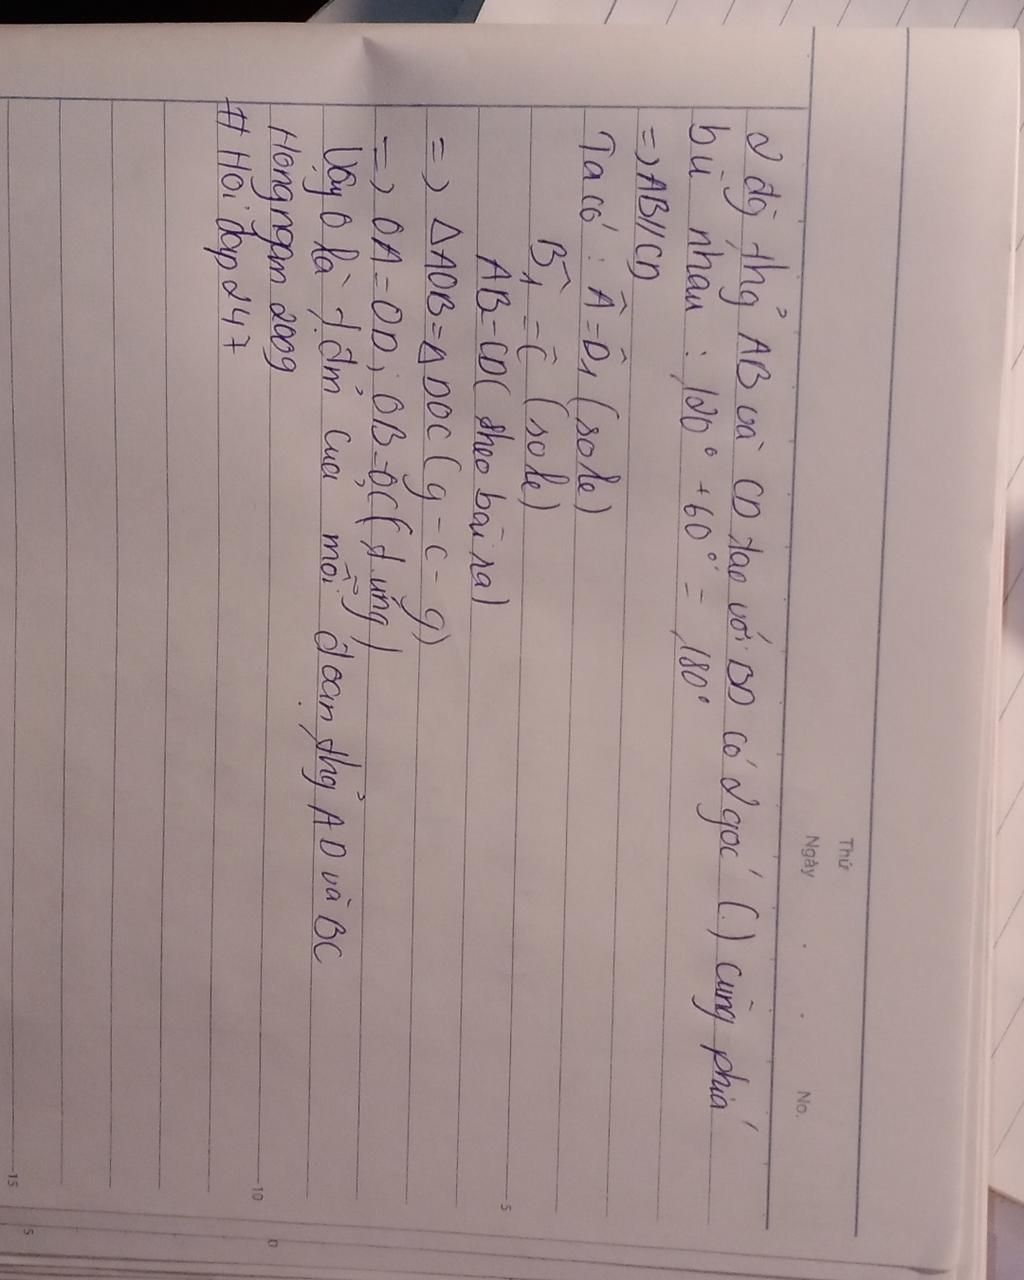 Thứ
Ngày . . No.
2 đg thg̉ AB và CD tạo với BD có 2 góc (.) cùng phía
bù nhau : 120° + 60° = 180°
=> AB//CD
Ta có : Â = D̂₁ (sole)
B̂₁ = Ĉ (sole)
AB=CD( theo bài ra)
=> ΔAOB=ΔDOC (g-c-g)
=> OA=OD; OB=OC(t ứng)
Vậy O là t.đm̉ của mỗi đoạn thg̉ AD và BC
Hongngam 2009
# Hoidap247
5
10
15